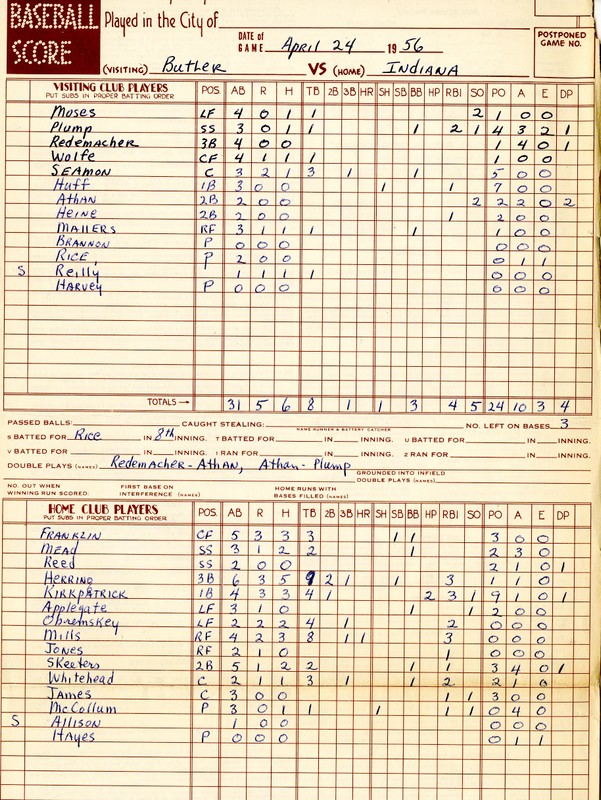 BASEBALL SCORE
Played in the City of
DATE of GAME April 24 19 56
POSTPONED GAME NO.
(VISITING) Butler VS (HOME) Indiana
VISITING CLUB PLAYERS POS. AB R H TB 2B 3B HR SH SB BB HP RBI SO PO A E DP
PUT SUBS IN PROPER BATTING ORDER
Moses LF 4 0 1 1 2 1 0 0
Plump SS 3 0 1 1 1 2 1 4 3 2 1
Redemacher 3B 4 0 0 1 4 0 1
Wolfe CF 4 1 1 1 1 0 0
SEAMON C 3 2 1 3 1 1 5 0 0
Huff 1B 3 0 0 1 1 7 0 0
Athan 2B 2 0 0 2 2 2 0 2
Heine 2B 2 0 0 1 2 0 0
MAllERS RF 3 1 1 1 1 1 0 0
BRANNON P 0 0 0 0 0 0
RICE, P 2 0 0 0 1 1
S Reilly 1 1 1 1 0 0 0
HARVEY P 0 0 0 0 0 0
TOTALS → 31 5 6 8 1 1 3 4 5 24 10 3 4
PASSED BALLS: CAUGHT STEALING: NO. LEFT ON BASES 3
NAME RUNNER & BATTERY CATCHER
S BATTED FOR Rice IN 8th INNING. T BATTED FOR IN INNING. U BATTED FOR IN INNING.
V BATTED FOR IN INNING. 1 RAN FOR IN INNING. 2 RAN FOR IN INNING.
DOUBLE PLAYS (NAMES) Redemacher-AthAN, Athan-Plump GROUNDED INTO INFIELD DOUBLE PLAYS (NAMES)
NO. OUT WHEN WINNING RUN SCORED: FIRST BASE ON INTERFERENCE (NAMES) HOME RUNS WITH BASES FILLED (NAMES)
HOME CLUB PLAYERS POS. AB R H TB 2B 3B HR SH SB BB HP RBI SO PO A E DP
PUT SUBS IN PROPER BATTING ORDER
FRANKLIN CF 5 3 3 3 1 1 3 0 0
MEAd SS 3 1 2 2 1 2 3 0
Reed SS 2 0 0 2 1 0 1
HERRING 3B 6 3 5 9 2 1 1 3 1 1 0
KIRKPATRICK 1B 4 3 3 4 1 2 3 1 9 1 0 1
Applegate LF 3 1 0 1 1 2 0 0
Obremskey LF 2 2 2 4 1 2 0 0 0
Mills RF 4 2 3 8 1 1 3 0 0 0
Jones RF 2 1 0 1 0 0 0
Skeeters 2B 5 1 2 2 1 1 3 4 0 1
Whitehead C 2 1 1 3 1 1 2 2 1 0
James C 3 0 0 1 1 3 0 0
McCollum P 3 0 1 1 1 1 1 0 4 0
S Allison 1 0 0 0 0 0
HAyes P 0 0 0 0 1 1